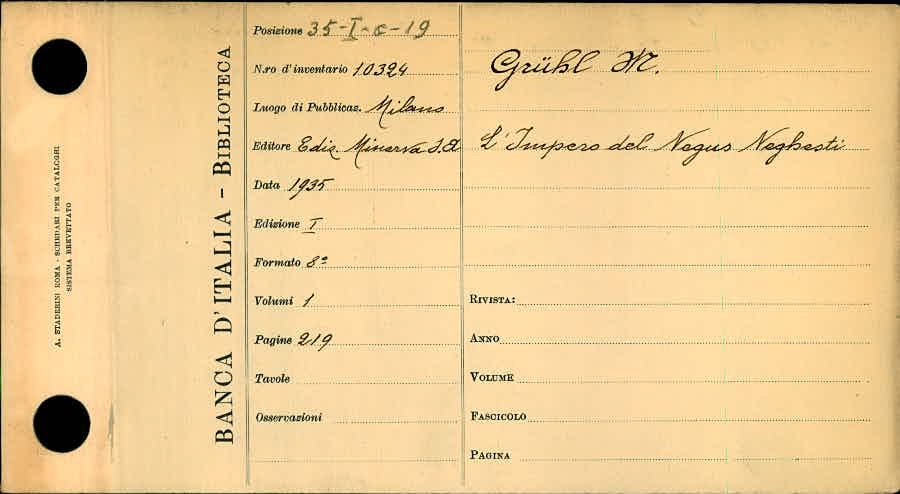 A. STADERINI ROMA - SCHEDARI PER CATALOGHI
SISTEMA BREVETTATO
BANCA D'ITALIA - BIBLIOTECA
Posizione 35-I-c-19
N.ro d'inventario 10324
Luogo di Pubblicaz. Milano
Editore Ediz. Minerva S.A
Data 1935
Edizione I
Formato 8º
Volumi 1
Pagine 219
Tavole
Osservazioni
Grühl M.
L'Impero del Negus Neghesti
RIVISTA:
ANNO
VOLUME
FASCICOLO
PAGINA